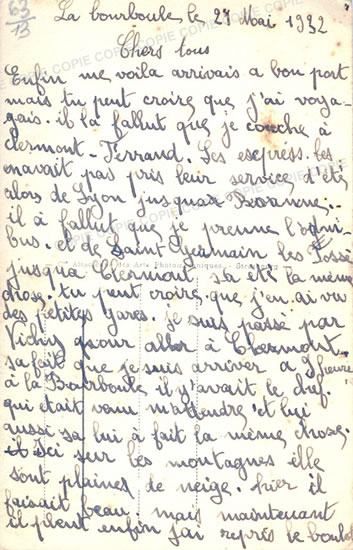 63
13
La bourboule le 27 Mai 1932
Chers tous
Enfin me voila arrivais a bon port
mais tu peut croire que j'ai voya-
gais. il la fallut que je couche à
Clermont-Ferrand. Les express. les
enavait pas pris leur service d'été
alors de Lyon jusquas Roanne..
il à fallut que je prenne l'omni-
bus. et de Saint Germain les Fossé
jusqua Clermont, sa été la même
chose. tu peut croire que j'en ai vu
des petites gares. je suis passé par
Vichy pour aller à Clermont.
sa fait que je suis arriver a 9 heure
à la Bourboule il y'avait le chef
qui était venu m'attendre et lui
aussi sa lui à fait la même chose.
Ici sur les montagnes elle
sont plaines de neige. hier il
faisait beau. mais maintenant
il pleut enfin j'ai repris le boulo